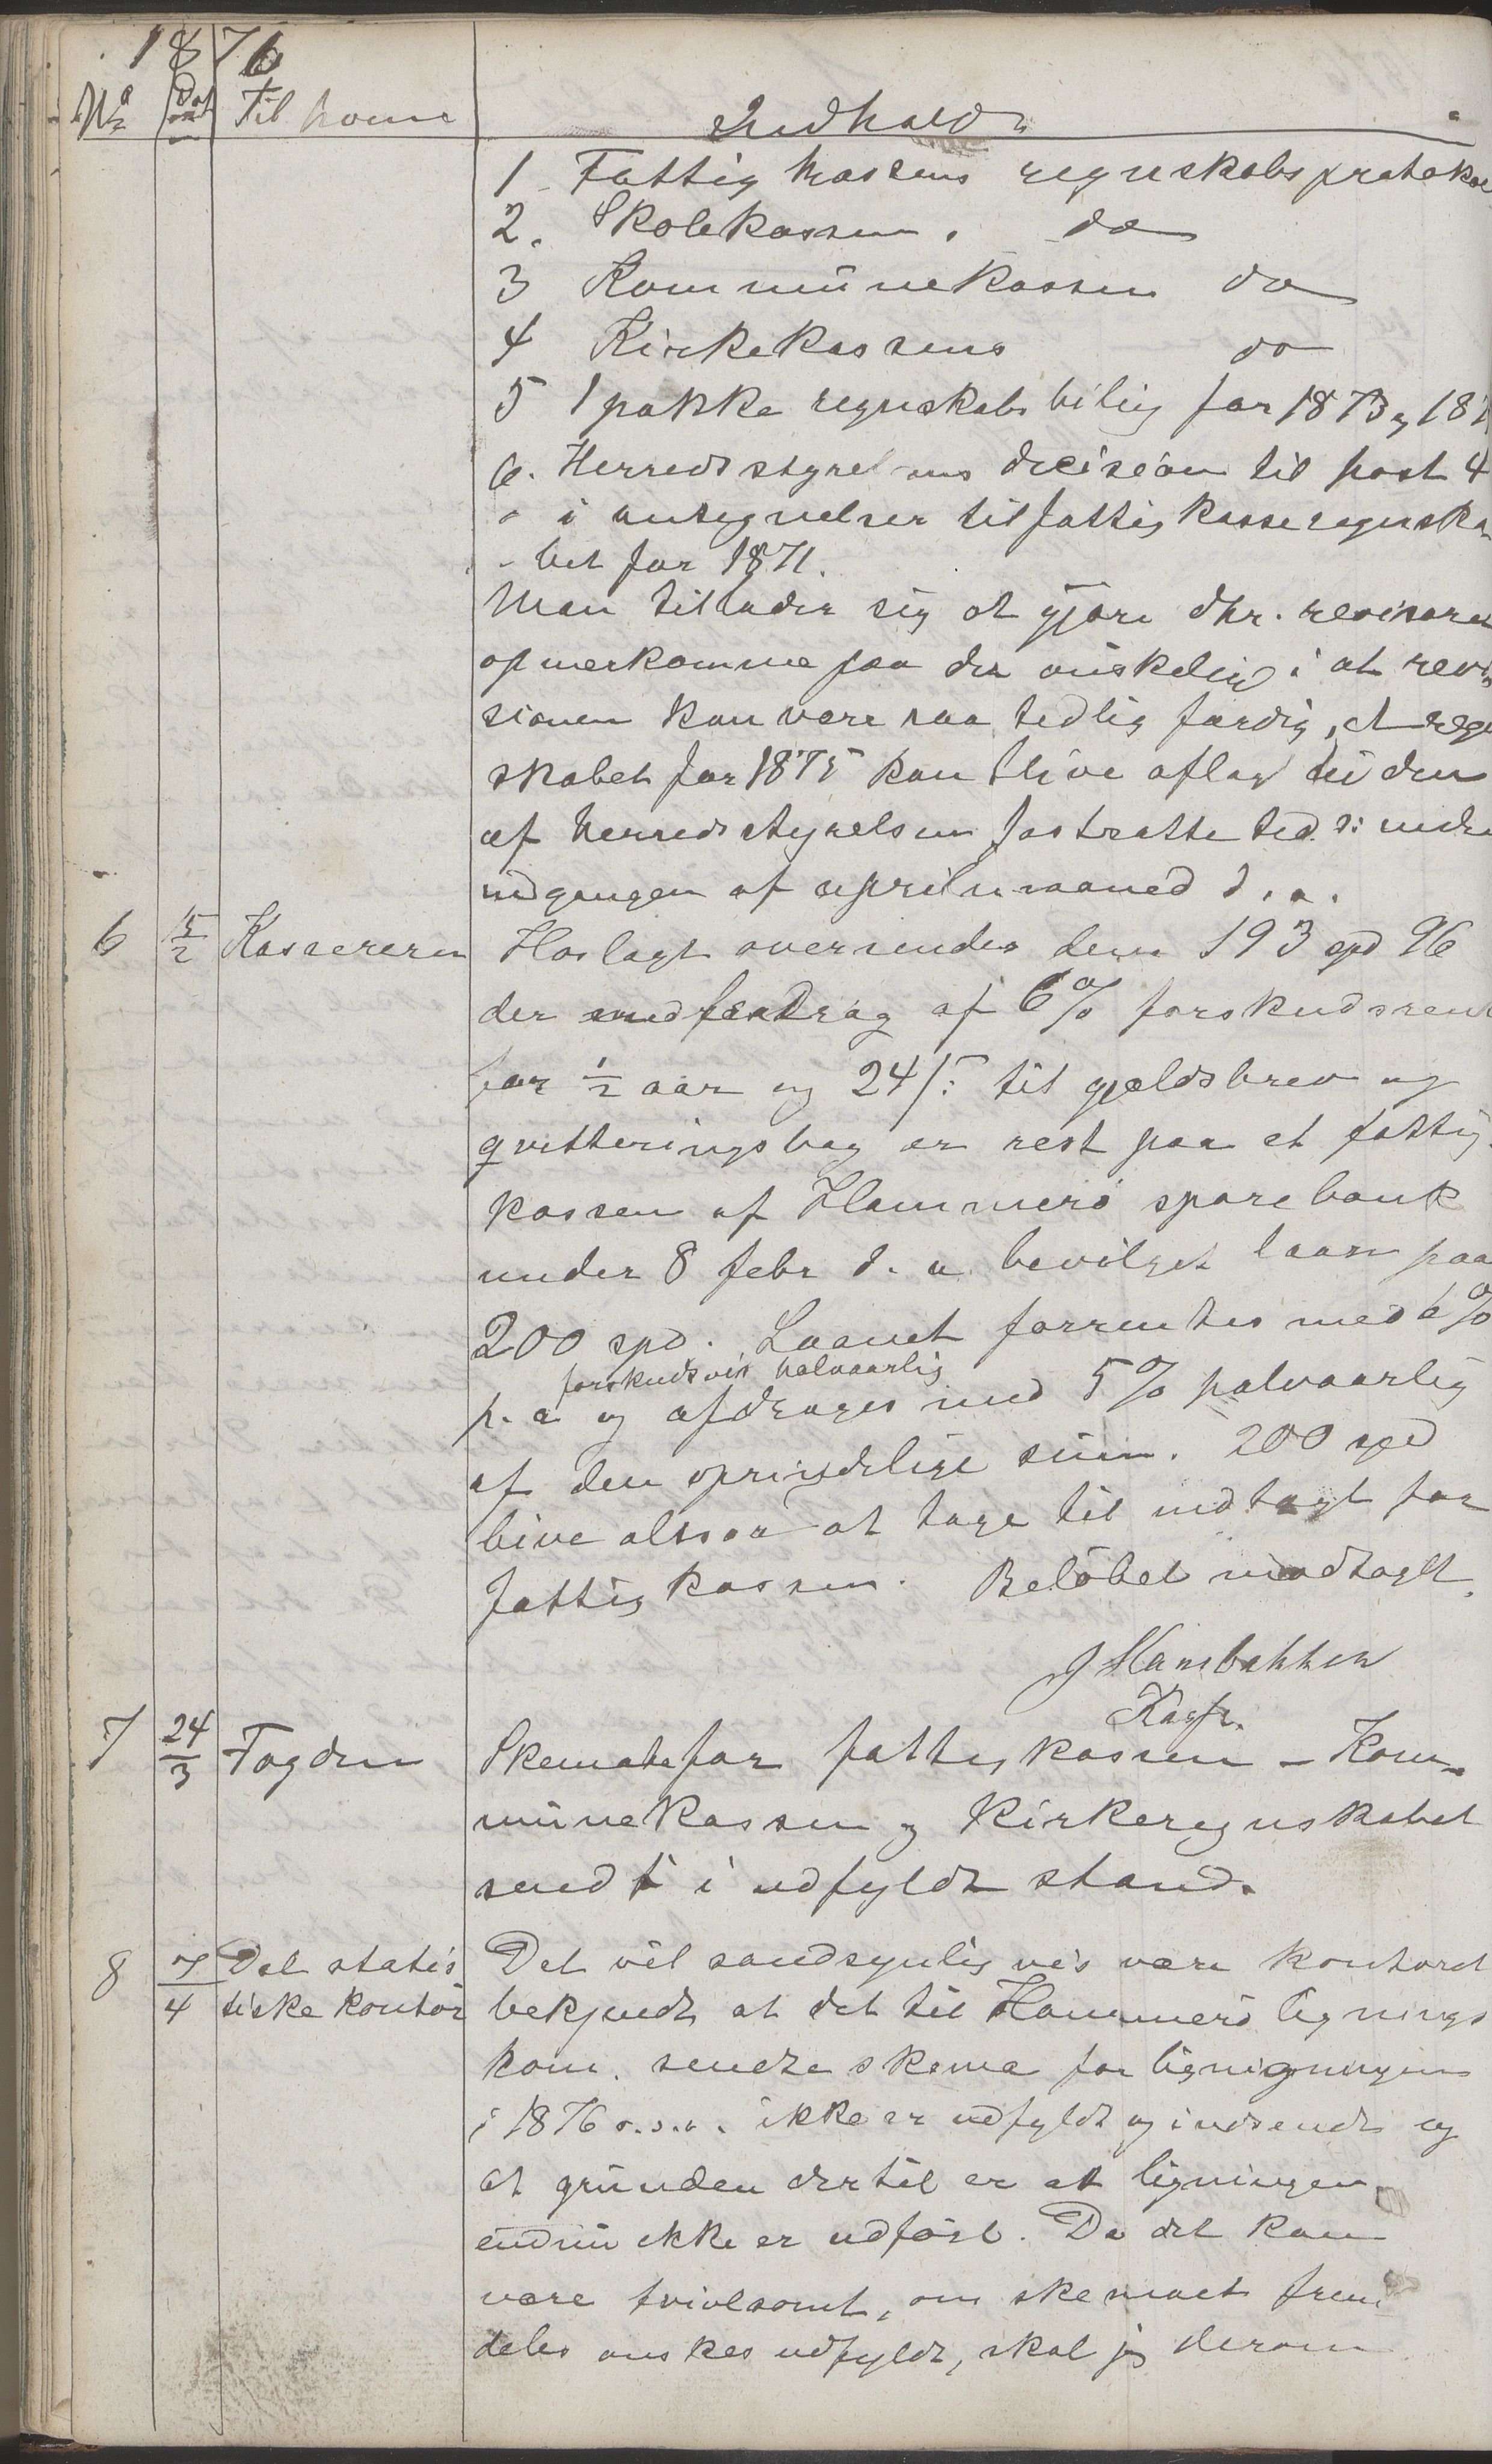 1876
No Dat Til hvem Indhold
1 Fattigkassens regnskabsprotokol
2. Skolekassen. do
3 Kommunekassen do
4 Kirkekassens do
5 1 pakke regnskabsbilag for 1873 og 187
6. Herredsstyrelsens decision til post 4
i antegnelser til fattigkasseregnska
- bet for 1871.
Man tillader sig at gjøre dhr. revisorer
opmerksomme paa det ønskelige i at revi
sionen kan være saa tidlig færdig, at regn
skabet for 1875 kan blive aflagt til den
af herredsstyrelsen fastsatte tid s: inden
udgangen af aprilmaaned d. a.
6 15/2 Kassereren Hoslagt oversendes dem 193 spd 96
der med fradrag af 6% forskudsrente
for 1/2 aar og 24 s: til gjældsbrev og
qvitteringsbog er rest paa et fattig
kassen af Hammerø sparebank
under 8 febr d. a. bevilget laan paa
200 spd. Laanet forrentes med 6%
forskudsvis halvaarlig
p. a og afdrages med 5% halvaarlig
af den oprindelige sum. 200 spd
bive altsaa at tage til indtægt for
fattigkassen. Beløbet modtaget.
J Hansbakken
Kasfr.
7 24/3 Fogden Skemate for fattigkassen - Kom-
munekassen og Kirkeregnskabet
sendt i udfyldt stand.
8 7/4 Det statis Det vil sandsynligvis være kontoret
tiske kontor bekjendt at det til Hammerø lignings
kom. sendte skema for lignigningen
i 1876 o.s.v. ikke er udfyldt og indsendt og
at grunden dertil er at ligningen
endnu ikke er udført. Da det kan
være tvivlsomt, om skemaet frem
deles ønskes udfyldt, skal jeg derom